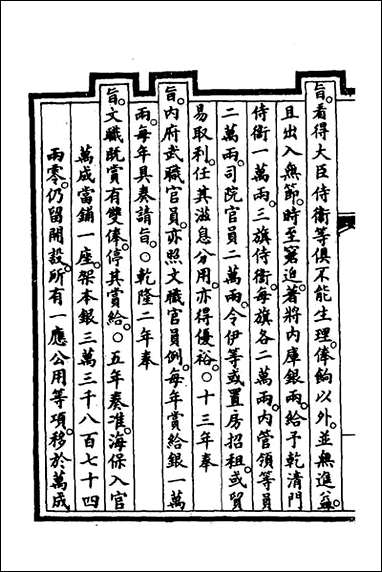 旨。看得大臣侍衛等俱不能生理。俸餉以外。並無進益。
且出入無節。時至窘迫。著將內庫銀兩。給予乾清門
侍衛一萬兩。三旗侍衛。每旗各二萬兩。內管領等員
二萬兩。司院官員二萬兩。令伊等或置房招租。或貿
易取利。任其滋息分用。亦得優裕。○十三年奉
旨。內府武職官員。亦照文職官員例。每年賞給銀一萬
兩。每年具奏請旨。○乾隆二年奉
旨。文職既賞有雙俸。停其賞給。○五年奏准。海保入官
萬成當鋪一座。架本銀三萬三千八百七十四
兩零。仍留開設。所有一應公用等項。移於萬成